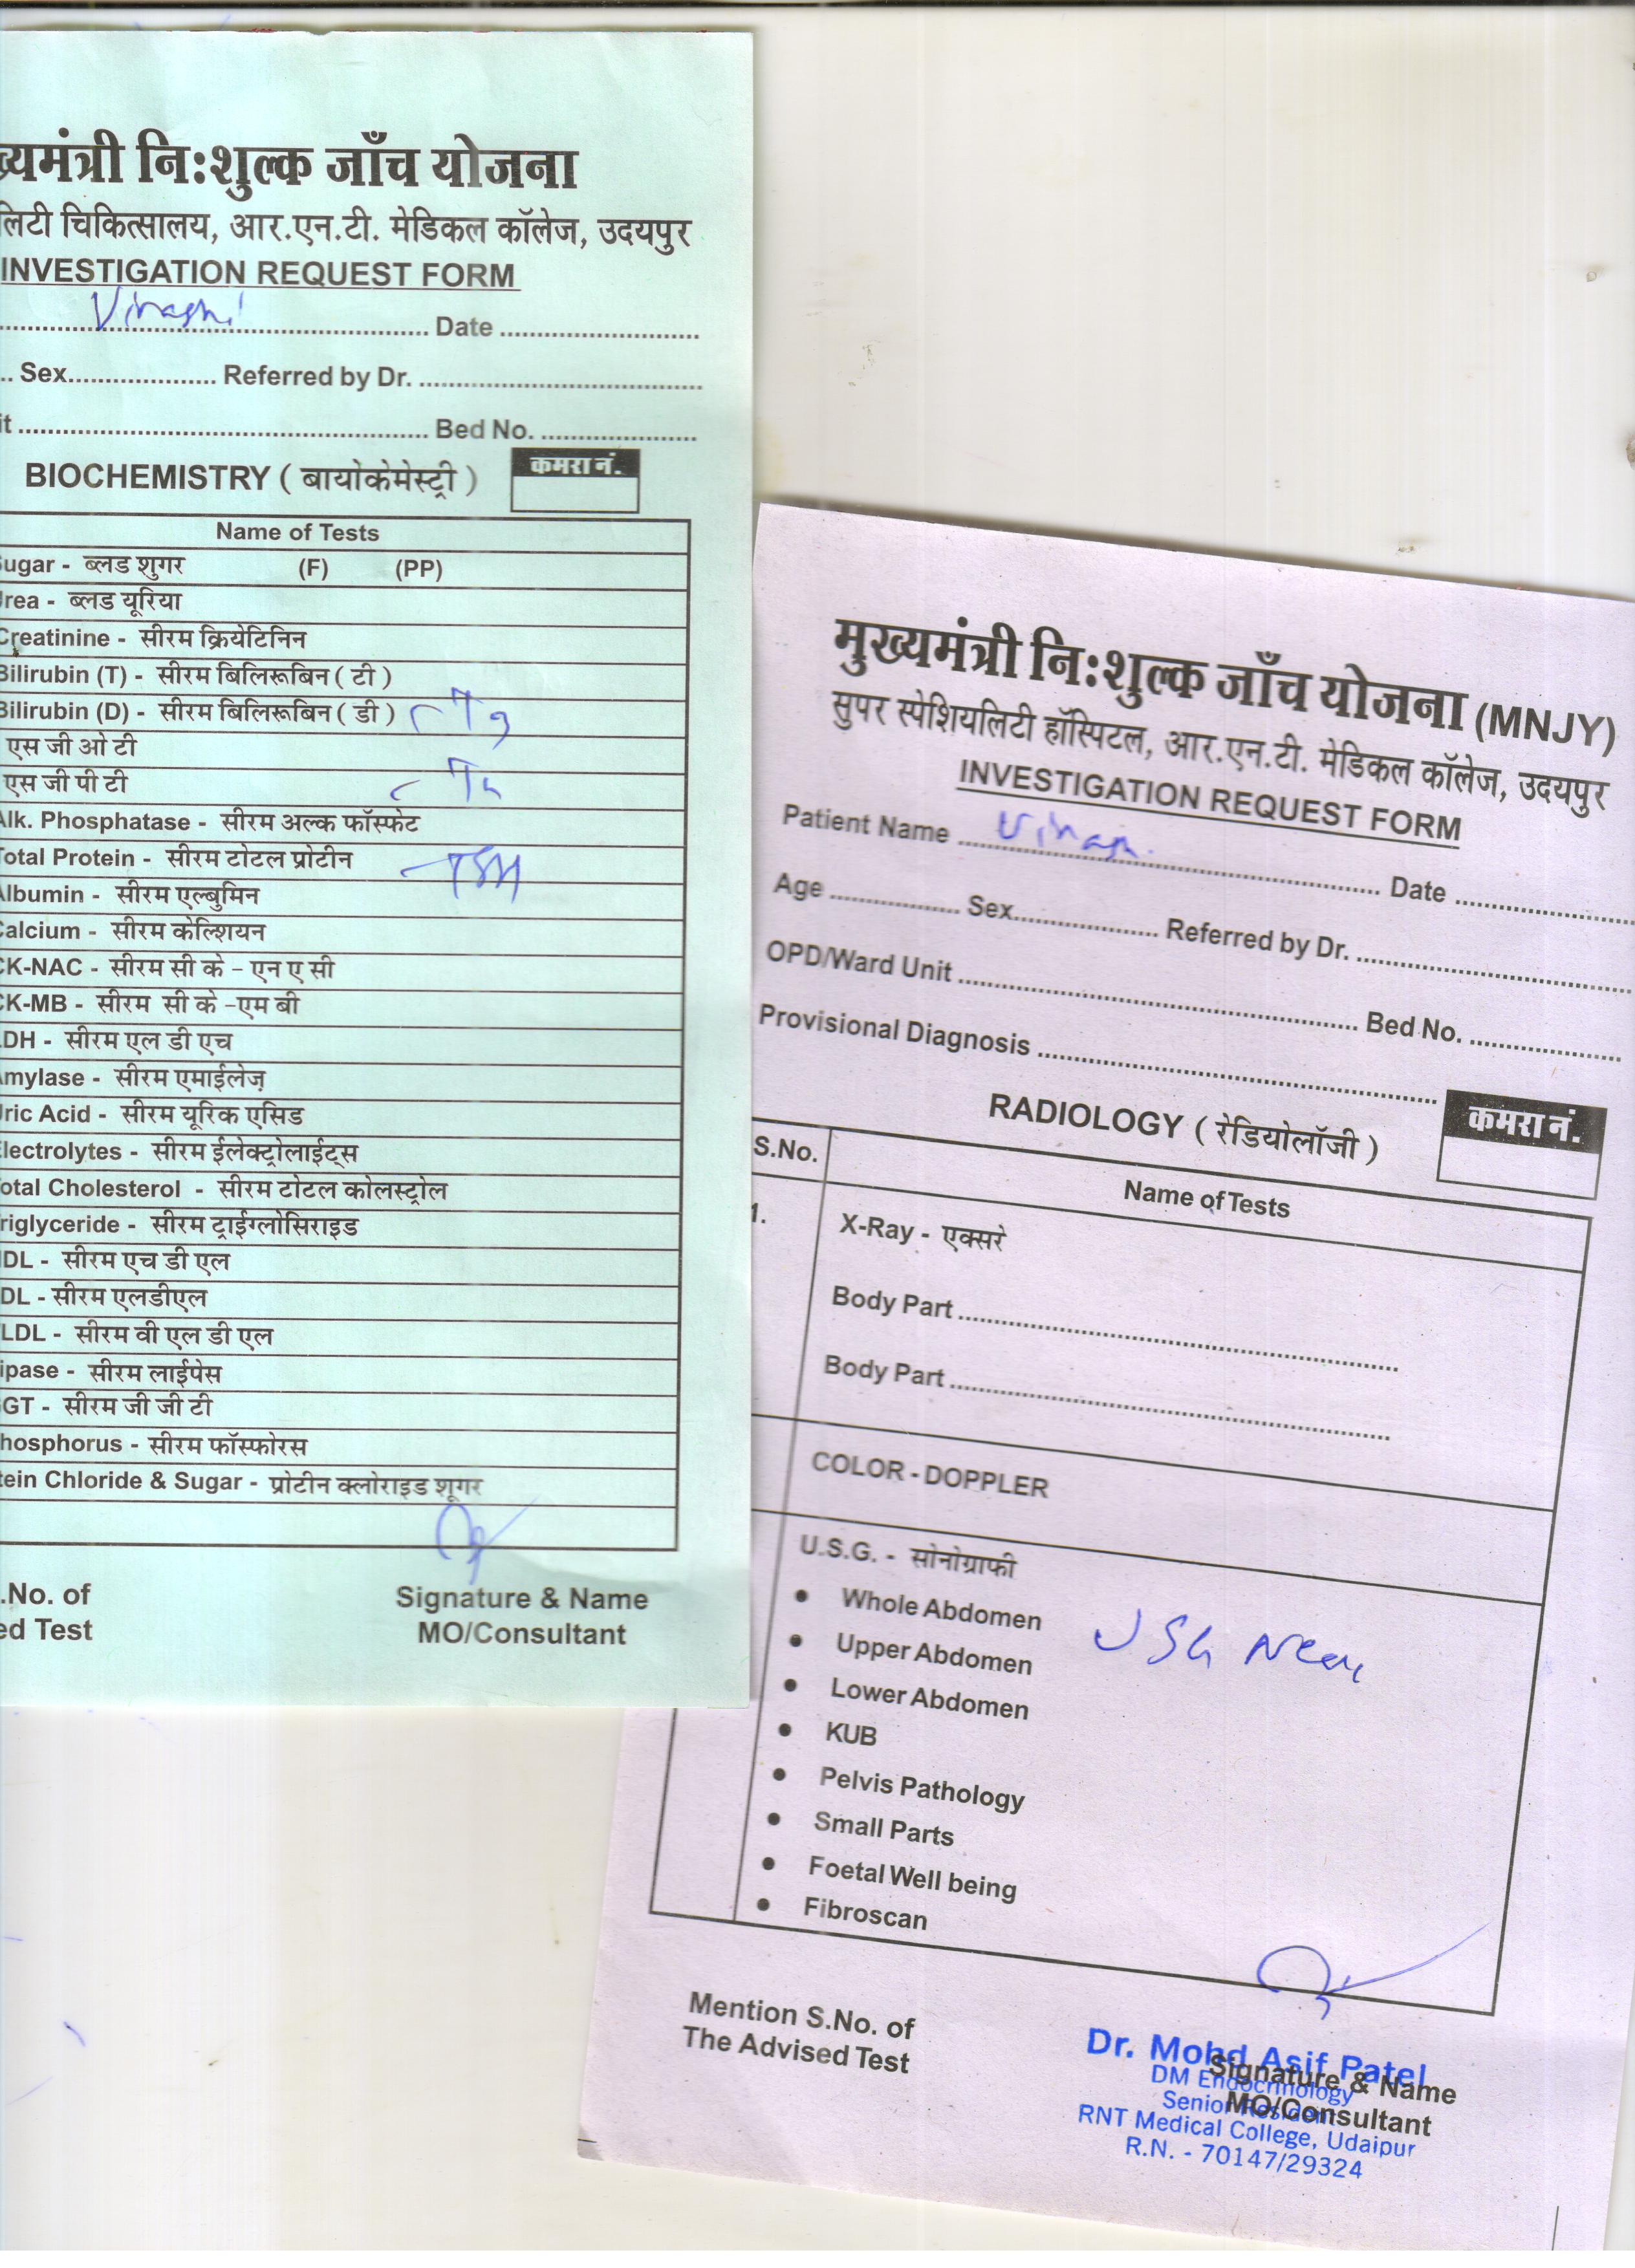 ख्यमंत्री नि:शुल्क जाँच योजना
लिटी चिकित्सालय, आर.एन.टी. मेडिकल कॉलेज, उदयपुर
INVESTIGATION REQUEST FORM
Date
Sex Referred by Dr.
it Bed No.
BIOCHEMISTRY ( बायोकेमेस्ट्री ) कमरा नं.
Name of Tests
ugar - ब्लड शुगर (F) (PP)
rea - ब्लड यूरिया
Creatinine - सीरम क्रियेटिनिन
Bilirubin (T) - सीरम बिलिरूबिन ( टी )
Bilirubin (D) - सीरम बिलिरूबिन ( डी )
एस जी ओ टी
एस जी पी टी
Alk. Phosphatase - सीरम अल्क फॉस्फेट
Total Protein - सीरम टोटल प्रोटीन
TSH
Albumin - सीरम एल्बुमिन
Calcium - सीरम केल्शियन
CK-NAC - सीरम सी के - एन ए सी
CK-MB - सीरम सी के -एम बी
LDH - सीरम एल डी एच
Amylase - सीरम एमाईलेज़
Uric Acid - सीरम यूरिक एसिड
lectrolytes - सीरम ईलेक्ट्रोलाईट्स
otal Cholesterol - सीरम टोटल कोलस्ट्रोल
riglyceride - सीरम ट्राईग्लोसिराइड
DL - सीरम एच डी एल
DL - सीरम एलडीएल
LDL - सीरम वी एल डी एल
ipase - सीरम लाईपेस
GT - सीरम जी जी टी
hosphorus - सीरम फॉस्फोरस
tein Chloride & Sugar - प्रोटीन क्लोराइड शूगर
.No. of
ed Test
Signature & Name
MO/Consultant
मुख्यमंत्री नि:शुल्क जाँच योजना (MNJY)
सुपर स्पेशियलिटी हॉस्पिटल, आर.एन.टी. मेडिकल कॉलेज, उदयपुर
INVESTIGATION REQUEST FORM
Patient Name Date
Age Sex Referred by Dr.
OPD/Ward Unit Bed No.
Provisional Diagnosis
RADIOLOGY ( रेडियोलॉजी ) कमरा नं.
S.No. Name of Tests
1. X-Ray - एक्सरे
Body Part
Body Part
COLOR - DOPPLER
U.S.G. - सोनोग्राफी
• Whole Abdomen
USG Neck
• Upper Abdomen
• Lower Abdomen
• KUB
• Pelvis Pathology
• Small Parts
• Foetal Well being
• Fibroscan
Mention S.No. of
The Advised Test
Signature & Name
MO/Consultant
Dr. Mohd Asif Patel
DM Endocrinology
Senior Resident
RNT Medical College, Udaipur
R.N. - 70147/29324